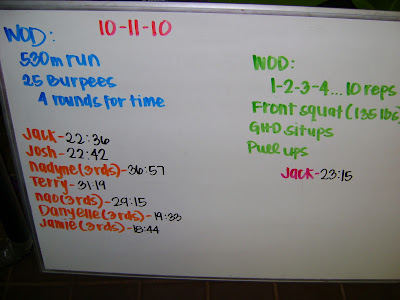 10-11-10
WOD:
530m run
25 Burpees
4 rounds for time
Jack-22:36
Josh-22:42
nadyne(3rds)-36:57
Terry-31:19
nao(3rds)-29:15
Danyelle(3rds)-19:33
Jamie(3rds)-18:44
WOD:
1-2-3-4... 10 reps
Front squat (135 lbs)
GHD situps
Pull ups
Jack-23:15